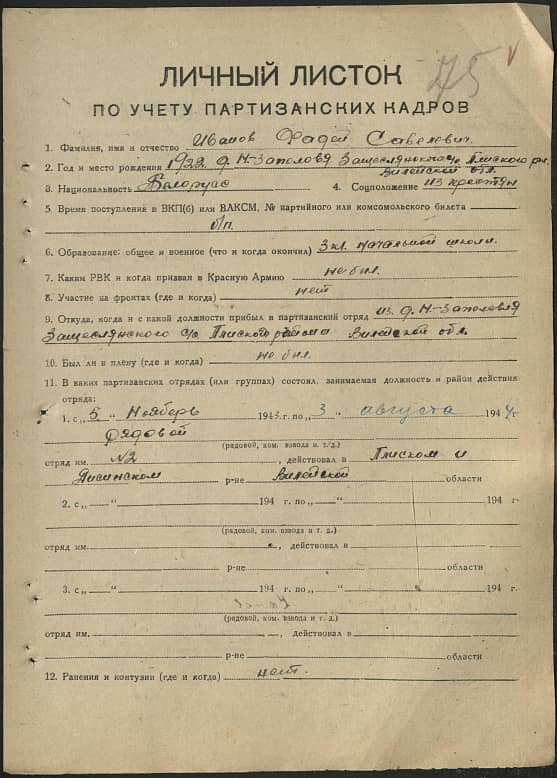 75 V
ЛИЧНЫЙ ЛИСТОК
ПО УЧЕТУ ПАРТИЗАНСКИХ КАДРОВ
1. Фамилия, имя и отчество Иванов Фадей Савельевич.
2. Год и место рождения 1922 д. Н-Заполовья Защеслянского с/с Плиского р-н.
Вилейской обл.
3. Национальность Белорус 4. Соцположение из крестьян
5. Время поступления в ВКП(б) или ВЛКСМ, № партийного или комсомольского билета
б/п.
6. Образование: общее и военное (что и когда окончил) 3 кл. начальной школы.
7. Каким РВК и когда призван в Красную Армию не был.
8. Участие на фронтах (где и когда) нет
9. Откуда, когда и с какой должности прибыл в партизанский отряд из д. Н-Заполовья
Защеслянского с/с Плиского района Вилейской обл.
10. Был ли в плену (где и когда) не был.
11. В каких партизанских отрядах (или группах) состоял, занимаемая должность и район действия
отряда:
1. с „ 5 “ Ноябрь 1943 г. по „ 3 “ августа 1944 г.
рядовой
(рядовой, ком. взвода и т. д.)
отряд им. №2 , действовал в Плиском и
Дисинском р-не Вилейской области
2. с „ “ 194 г. по „ “ 194 г.
(рядовой, ком. взвода и т. д.)
отряд им. , действовал в
р-не области
3. с „ “ 194 г. по „ “ 194 г.
(рядовой, ком. взвода и т. д.)
отряд им. , действовал в
р-не области
12. Ранения и контузии (где и когда) нет.